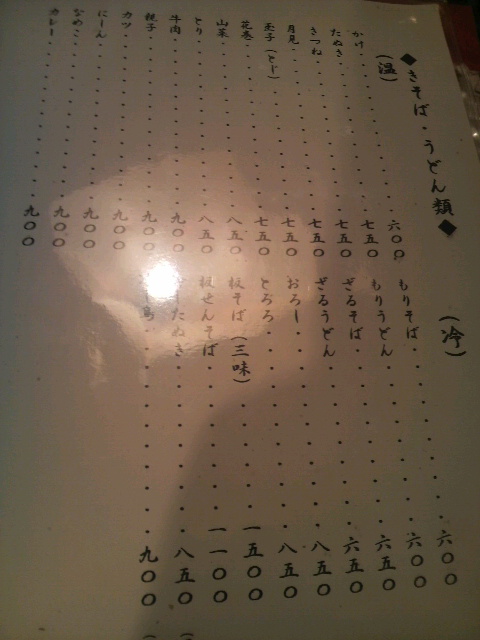 ◆きそば・うどん類◆
(温)
かけ・・・・・・・・・・六〇〇
たぬき・・・・・・・・・・七五〇
きつね・・・・・・・・・・七五〇
月見・・・・・・・・・・七五〇
玉子(とじ)・・・・・・・・七五〇
花巻・・・・・・・・・・七五〇
山菜・・・・・・・・・・八五〇
とり・・・・・・・・・・八五〇
牛肉・・・・・・・・・・九〇〇
親子・・・・・・・・・・九〇〇
カツ・・・・・・・・・・九〇〇
にしん・・・・・・・・・・九〇〇
なめこ・・・・・・・・・・九〇〇
カレー・・・・・・・・・・九〇〇
(冷)
もりそば・・・・・・・六〇〇
もりうどん・・・・・・・六〇〇
ざるそば・・・・・・・六五〇
ざるうどん・・・・・・・六五〇
おろし・・・・・・・八五〇
とろろ・・・・・・・八五〇
板そば(三味)・・・・・一五〇〇
板せんそば・・・・・・一一〇〇
たぬき・・・・・・・八五〇
・・・・・・・九〇〇